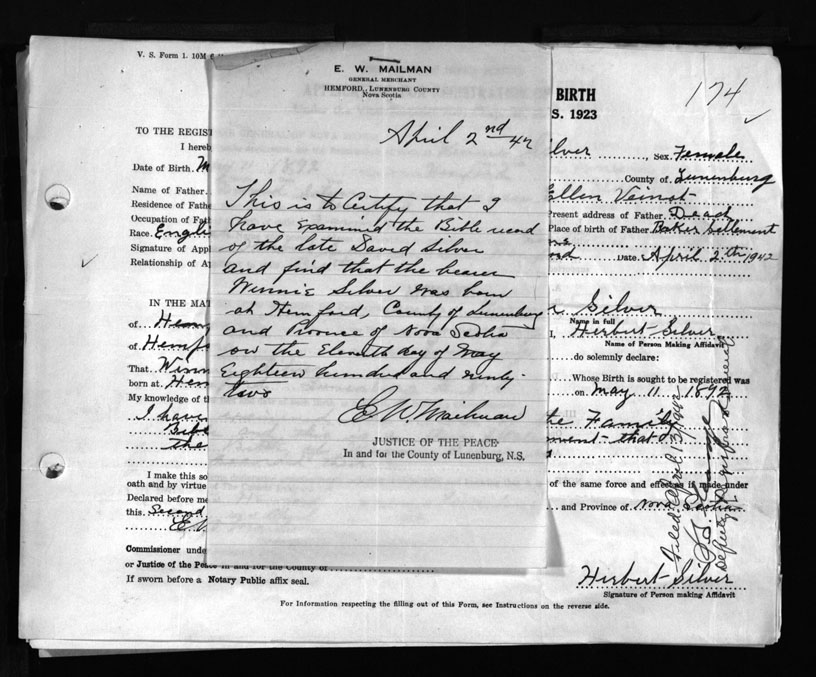 V. S. Form 1. 10M
E. W. MAILMAN
GENERAL MERCHANT
HEMFORD, LUNENBURG COUNTY
Nova Scotia
April 2nd 42
This is to Certify that I
have examined the Bible record
of the late David Silver
and find that the bearer
Winnie Silver was born
at Hemford, County of Lunenburg
and Province of Nova Scotia
on the Eleventh day of May
Eighteen hundred and ninty-
two
E. W. Mailman
JUSTICE OF THE PEACE
In and for the County of Lunenburg, N.S.
BIRTH
S. 1923
174
TO THE REGIST
I hereb
ilver Sex. Female
Date of Birth. M
County of Lunenburg
Name of Father.
Ellen Veinot
Residence of Fathe
Present address of Father. Dead
Occupation of Fat
Place of birth of Father. Baker Settlement
Race. Engli
Signature of Appl
Date April 2th 1942
Relationship of Ap
IN THE MAT
r Silver
Name in full
of Hem
I, Herbert Silver
Name of Person Making Affidavit
of Hemf
do solemnly declare:
That Winn
Whose Birth is sought to be registered was
born at Hem
on May 11 1892
My knowledge of th
I have
the Family
Bib
ment that
the
I make this so
of the same force and effect as if made under
oath and by virtue
Declared before me
and Province of Nova Scotia
this Second
E W
Commissioner unde
or Justice of the Peace in and for the County of
If sworn before a Notary Public affix seal.
Herbert Silver
Signature of Person making Affidavit
For Information respecting the filling out of this Form, see Instructions on the reverse side.
Filed April 13/1942
Deputy Registrar General